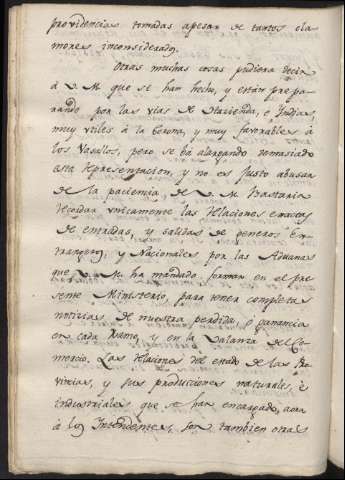 providencias tomadas apesar de tantos cla
mores inconsiderados.
Otras muchas cosas pudiera decir
à V. M. que se han hecho, y están prepa-
rando por las vias de Hazienda, è Indias,
muy utiles à la Corona, y muy favorables à
los Vasallos, pero se ha alargando demasiado
esta representacion, y no es justo abusar
de la paciencia, de V. M. Bastaria
recordar unicamente las relaciones exactas
de entradas, y salidas de generos Ex-
trangeros, y Nacionales por las Aduanas
que V. M. ha mandado formar en el pre
sente Ministerio, para tener completas
noticias de nuestra perdida, ò ganancia
en cada Ramo, y en la Balanza del Co-
mercio. Las relaciones del estado de las Pro
vincias, y sus producciones naturales, è
industriales que se han encargado, aora
à los Intendentes, son tambien otras